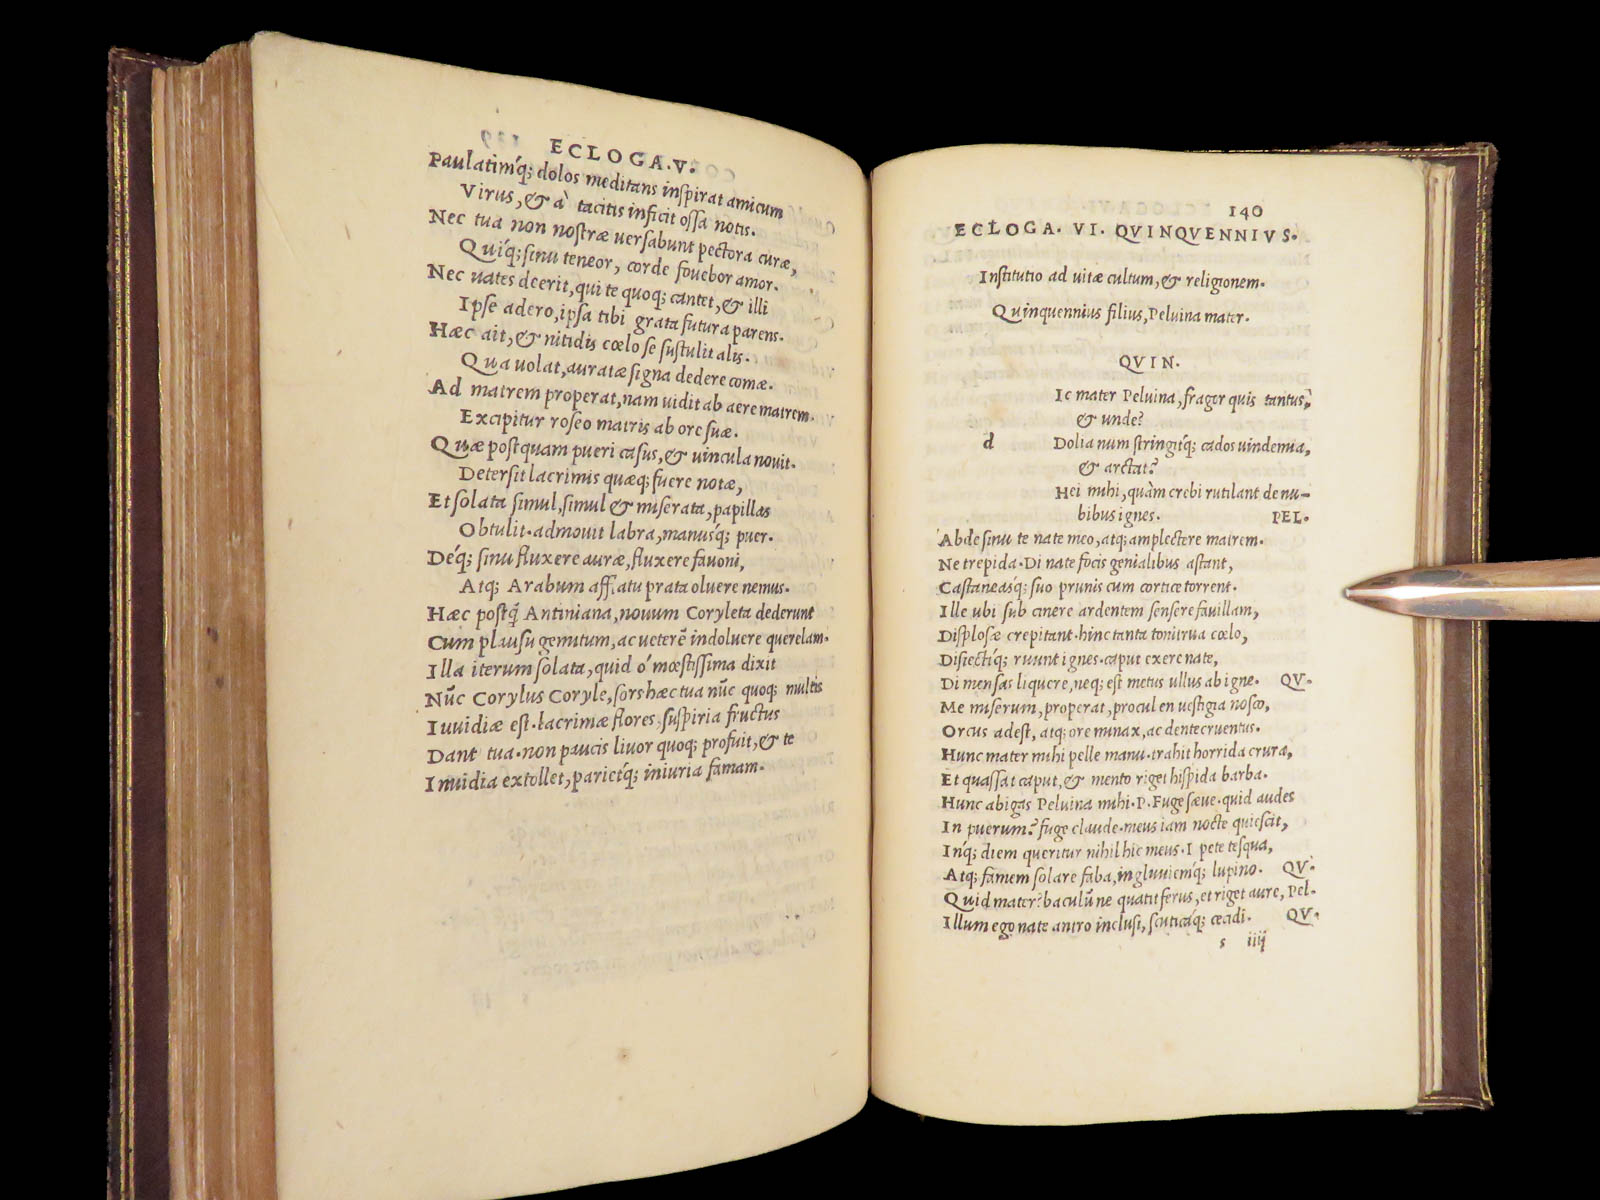 ECLOGA.V.
Paulatimq́; dolos meditans inſpirat amicum
Virus, & à tacitis inficit oſſa notis.
Nec tua non noſtræ uerſabunt pectora curæ,
Quiq́; ſinu teneor, corde fouebor amor.
Nec uates deerit, qui te quoq; cantet, & illi
Ipſe adero, ipſa tibi grata futura parens.
Hæc ait, & nitidis cœlo ſe ſuſtulit alis.
Qua uolat, auratæ ſigna dedere comæ.
Ad matrem properat, nam uidit ab aere matrem.
Excipitur roſeo matris ab ore ſuæ.
Quæ poſtquam pueri caſus, & uincula nouit.
Deterſit lacrimis quæq; fuere notæ,
Et ſolata ſimul, ſimul & miſerata, papillas
Obtulit. admouit labra, manusq́; puer.
Deq́; ſinu fluxere auræ, fluxere fauoni,
Atq; Arabum afflatu prata oluere nemus.
Hæc poſtq̃ Antiniana, nouum Coryleta dederunt
Cum plauſu gemitum, ac ueterẽ indoluere querelam.
Illa iterum ſolata, quid ó mœſtiſſima dixit
Nũc Corylus Coryle, ſors hæc tua nũc quoq; multis
Inuidiæ eſt. lacrimæ flores, ſuſpiria fructus
Dant tua. non paucis liuor quoq; profuit, & te
Inuidia extollet, parietq́; iniuria famam.
140
ECLOGA. VI. QVINQVENNIVS.
Inſtitutio ad uitæ cultum, & religionem.
Quinquennius filius, Peluina mater.
QVIN.
Ic mater Peluina, fragor quis tantus,
& unde?
d Dolia num ſtringitq́; cados uindemia,
& arctat?
Hei mihi, quàm crebi rutilant de nu-
bibus ignes. PEL.
Abde ſinu te nate meo, atq; amplectere matrem.
Ne trepida. Di nate focis genialibus aſtant,
Caſtaneasq́; ſuo prunis cum cortice torrent.
Ille ubi ſub cinere ardentem ſenſere fauillam,
Diſploſæ crepitant. hinc tanta tonitrua cœlo,
Diſiectiq́; ruunt ignes. caput exere nate,
Di menſas liquere, neq; eſt metus ullus ab igne. QV.
Me miſerum, properat, procul en ueſtigia noſco,
Orcus adeſt, atq; ore minax, ac dente cruentus.
Hunc mater mihi pelle manu. trahit horrida crura,
Et quaſſat caput, & mento riget hiſpida barba.
Hunc abigas Peluina mihi. P. Fuge ſæue. quid audes
In puerum? fuge claude. meus iam nocte quieſcit,
Inq́; diem queritur nihil hic meus. I pete teſqua,
Atq; famem ſolare faba, ingluuiemq́; lupino. QV.
Quid mater? baculũ ne quatit ferus, et riget aure, Pel.
Illum ego nate antro incluſi, ſcuticaq; cecidi. QV.
s iiij